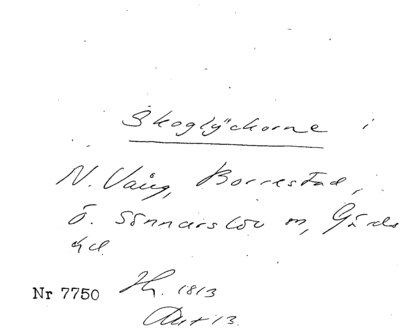 Skoglyckorne i
N. Vång, Borrestad,
Ö. Sönnarslöv m, Gärds
hd
Nr 7750 H. 1813